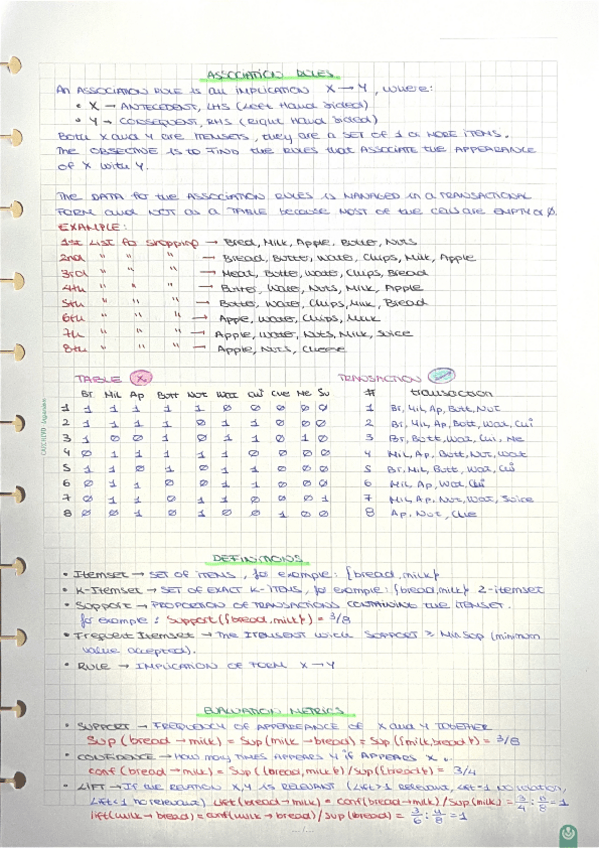 ASSOCIATION RULES
AN ASSOCIATION RULE IS AN IMPLICATION X → Y, WHERE:
• X → ANTECEDENT, LHS (Left Hand Sided)
• Y → CONSEQUENT, RHS (Right Hand Sided)
BOTH X and Y ARE ITEMSETS, they are a SET OF 1 or MORE ITEMS.
The OBJECTIVE IS to FIND the RULES that ASSOCIATE the APPEARANCE
OF X with Y.
The DATA for the ASSOCIATION RULES IS MANAGED in a TRANSACTIONAL
FORM and NOT as a TABLE because MOST OF the CELLS are EMPTY or ∅.
EXAMPLE:
1st List for shopping → Bread, Milk, Apple, Butter, Nuts
2nd " " " → Bread, Butter, Water, Chips, Milk, Apple
3rd " " " → Meat, Butter, Water, Chips, Bread
4th " " " → Butter, Water, Nuts, Milk, Apple
5th " " " → Butter, Water, Chips, Milk, Bread
6th " " " → Apple, Water, Chips, Milk
7th " " " → Apple, Water, Nuts, Milk, Juice
8th " " " → Apple, Nuts, Cheese
TABLE X TRANSACTION
Br Mil Ap Butt Nut Wat Chi Che Me # transaction
1 1 1 1 1 1 ∅ ∅ ∅ ∅ ∅ 1 Br, Mil, Ap, Butt, Nut
2 1 1 1 1 ∅ 1 1 ∅ ∅ ∅ 2 Br, Mil, Ap, Butt, Wat, Chi
3 1 ∅ ∅ 1 ∅ 1 1 ∅ 1 ∅ 3 Br, Butt, Wat, Chi, Me
4 ∅ 1 1 1 1 1 ∅ ∅ ∅ ∅ 4 Mil, Ap, Butt, Nut, Wat
5 1 1 ∅ 1 ∅ 1 1 ∅ ∅ ∅ 5 Br, Mil, Butt, Wat, Chi
6 ∅ 1 1 ∅ ∅ 1 1 ∅ ∅ ∅ 6 Mil, Ap, Wat, Chi
7 ∅ 1 1 ∅ 1 1 ∅ ∅ ∅ 1 7 Mil, Ap, Nut, Wat, Juice
8 ∅ ∅ 1 ∅ 1 ∅ ∅ 1 ∅ ∅ 8 Ap, Nut, Che
DEFINITIONS
• Itemset → SET OF ITEMS, for example: {bread, milk}
• K-Itemset → SET OF EXACT K-ITEMS, for example: {bread, milk} 2-itemset
• Support → PROPORTION OF TRANSACTIONS CONTAINING the ITEMSET.
for example: Support({bread, milk}) = 3/8
• Frequent Itemset → The ITEMSET with SUPPORT ≥ MinSup (minimum
value accepted).
• RULE → IMPLICATION OF FORM X → Y
EVALUATION METRICS
• SUPPORT → FREQUENCY OF APPEREANCE OF X and Y TOGETHER
Sup (bread → milk) = Sup (milk → bread) = Sup ({milk, bread}) = 3/8
• CONFIDENCE → HOW MANY TIMES APPEARS Y IF APPEARS X.
conf (bread → milk) = Sup ({bread, milk}) / sup({bread}) = 3/4
• LIFT → If the RELATION X, Y IS RELEVANT (Lift > 1 RELEVANT, Lift = 1 NO relation,
Lift < 1 no relevant) Lift (bread → milk) = conf(bread → milk) / Sup (milk) = 3/4 : 6/8 = 1
lift (milk → bread) = conf(milk → bread) / sup (bread) = 3/6 : 4/8 = 1